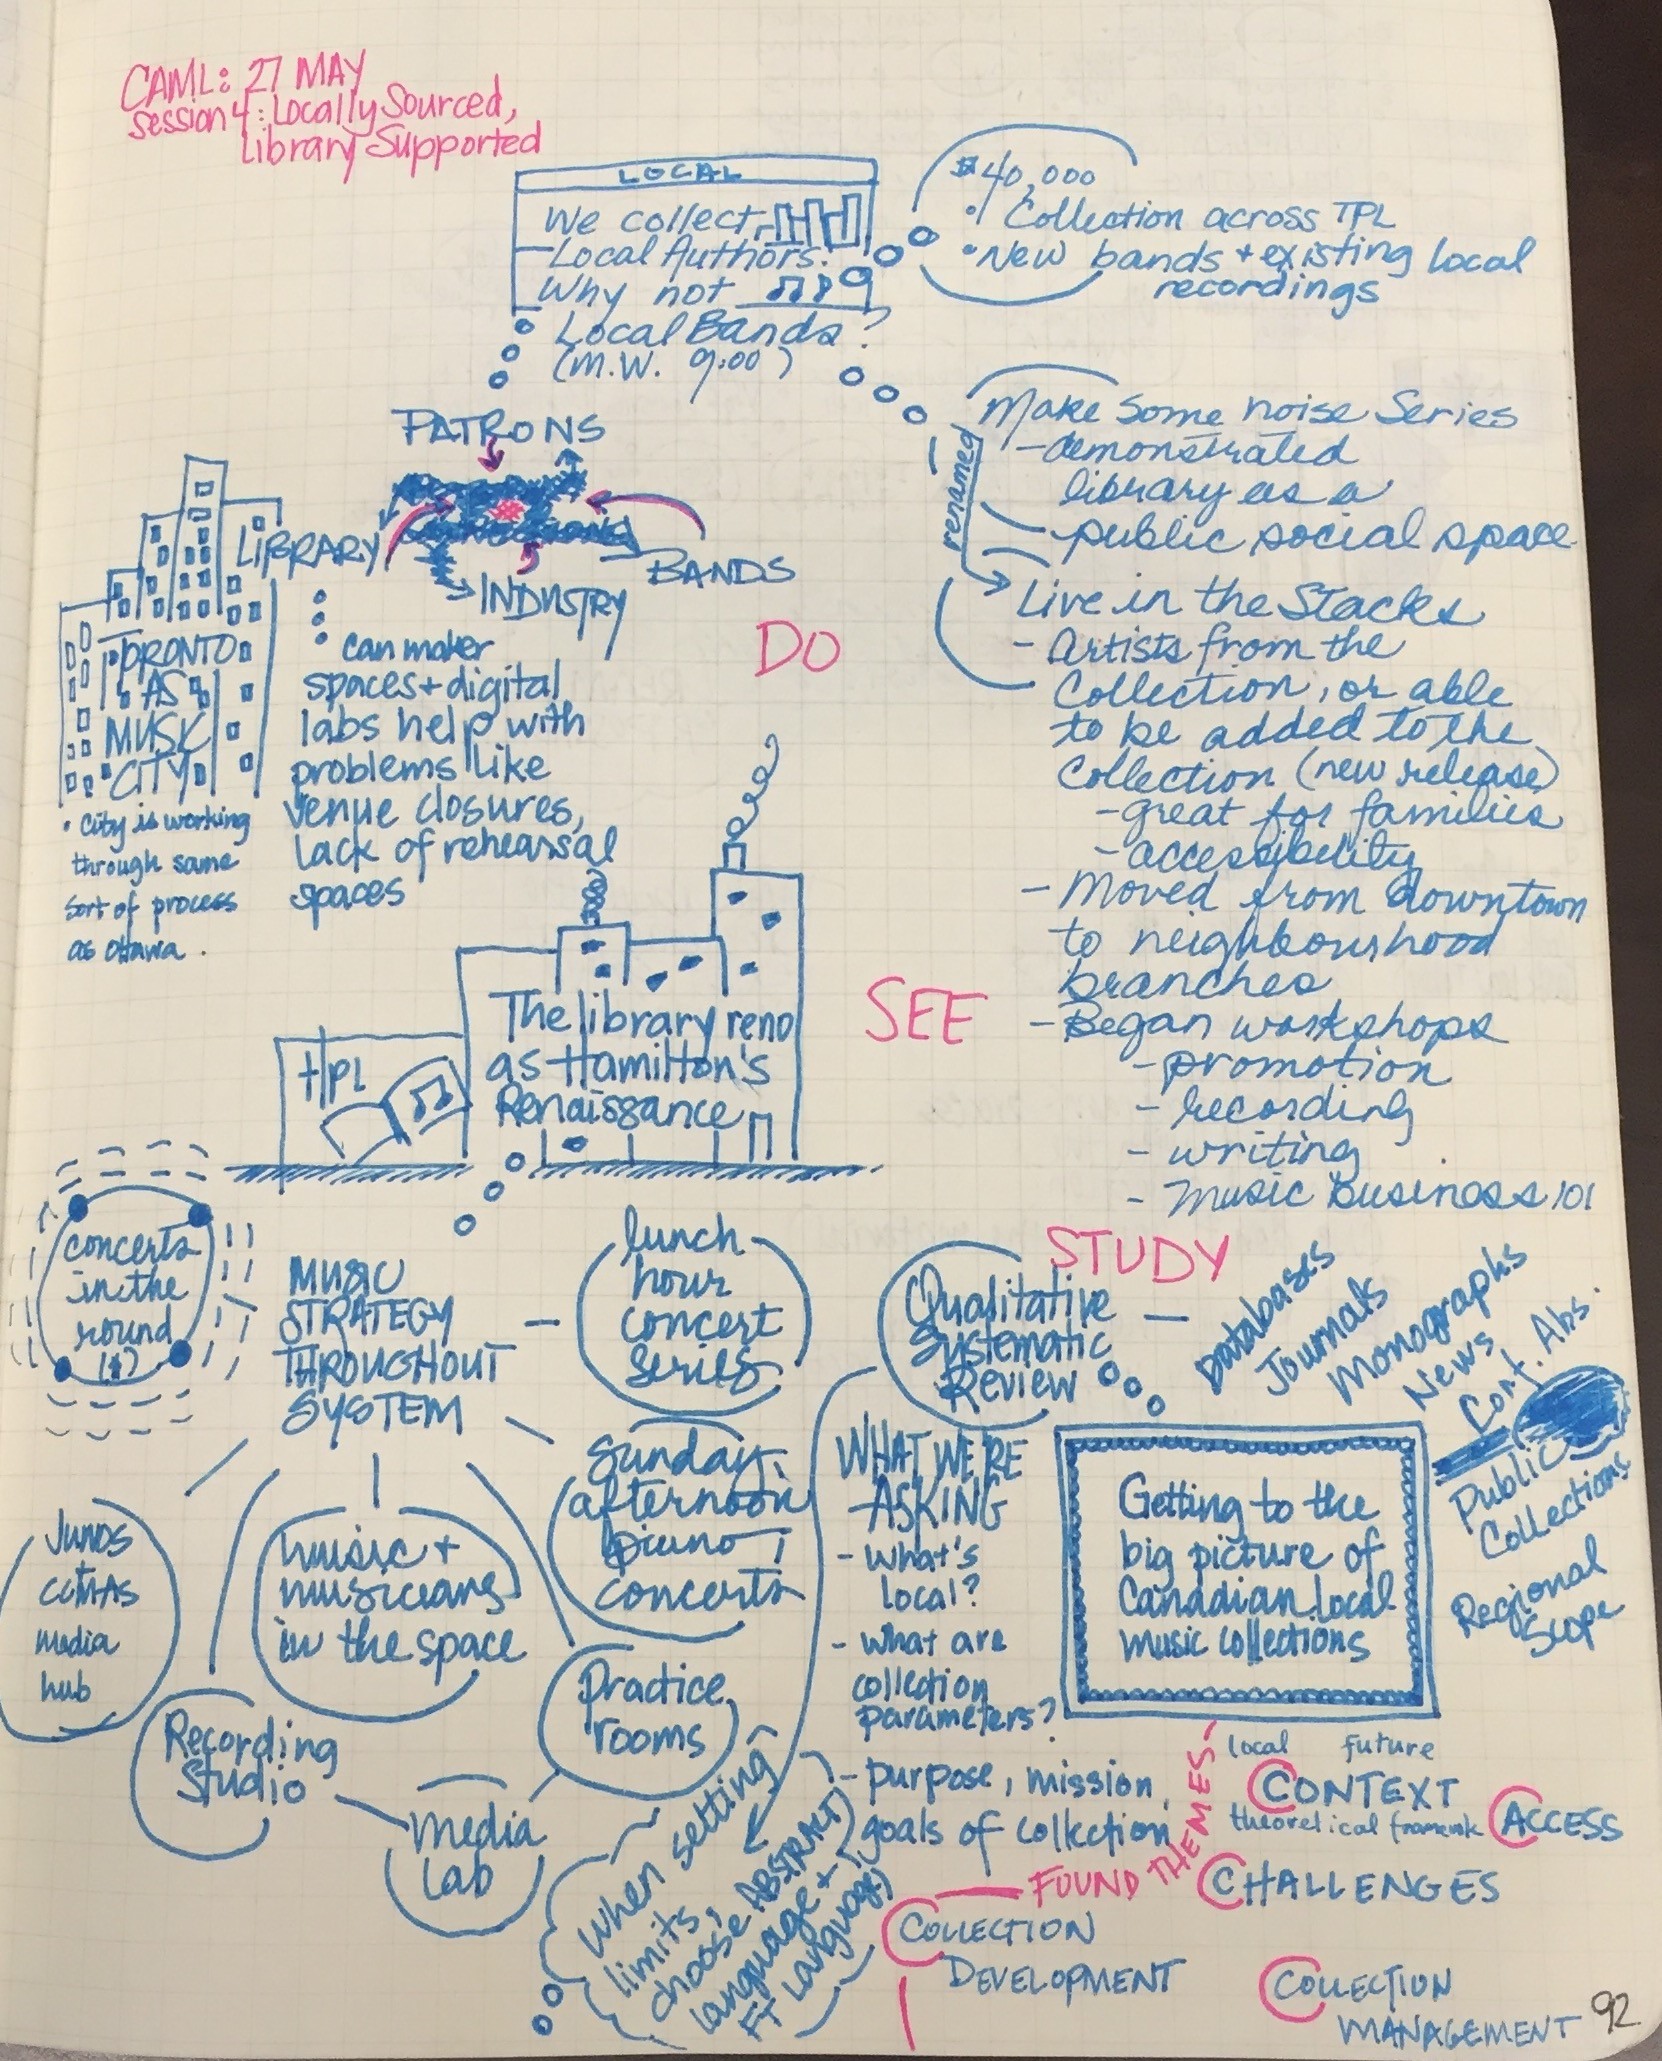 CAML: 27 MAY
Session 4: Locally Sourced,
Library Supported
LOCAL
We collect
Local Authors.
Why not
Local Bands?
(M.W. 9:00)
$40,000
• Collection across TPL
• New bands + existing local
recordings
PATRONS
LIBRARY
BANDS
INDUSTRY
TORONTO
AS
MUSIC
CITY
• City is working
through same
sort of process
as Ottawa.
can maker
spaces + digital
labs help with
problems like
venue closures,
lack of rehearsal
spaces
DO
Make Some Noise Series
- demonstrated
library as a
public social space
renamed
Live in the Stacks
- Artists from the
Collection, or able
to be added to the
Collection (new release)
- great for families
- accessibility
- Moved from downtown
to neighbourhood
branches
- Began workshops
- promotion
- recording
- writing
- Music Business 101
SEE
HPL
The library reno
as Hamilton's
Renaissance
concerts
in the
round
($)
MUSIC
STRATEGY
THROUGHOUT
SYSTEM
lunch
hour
concert
series
Sunday
afternoon
piano
concerts
Junos
CCMAs
media
hub
music +
musicians
in the space
Practice
rooms
Recording
Studio
Media
Lab
STUDY
Qualitative
Systematic
Review
Databases
Journals
Monographs
News
Conf. Abs.
Public
Collections
Regional
Scope
Getting to the
big picture of
Canadian local
music collections
WHAT WE'RE
ASKING
- What's
local?
- what are
collection
parameters?
- purpose, mission,
goals of collection
When setting
limits,
choose ABSTRACT
language +
FT language
FOUND THEMES
local future
CONTEXT
theoretical framework
ACCESS
CHALLENGES
COLLECTION
DEVELOPMENT
COLLECTION
MANAGEMENT
92